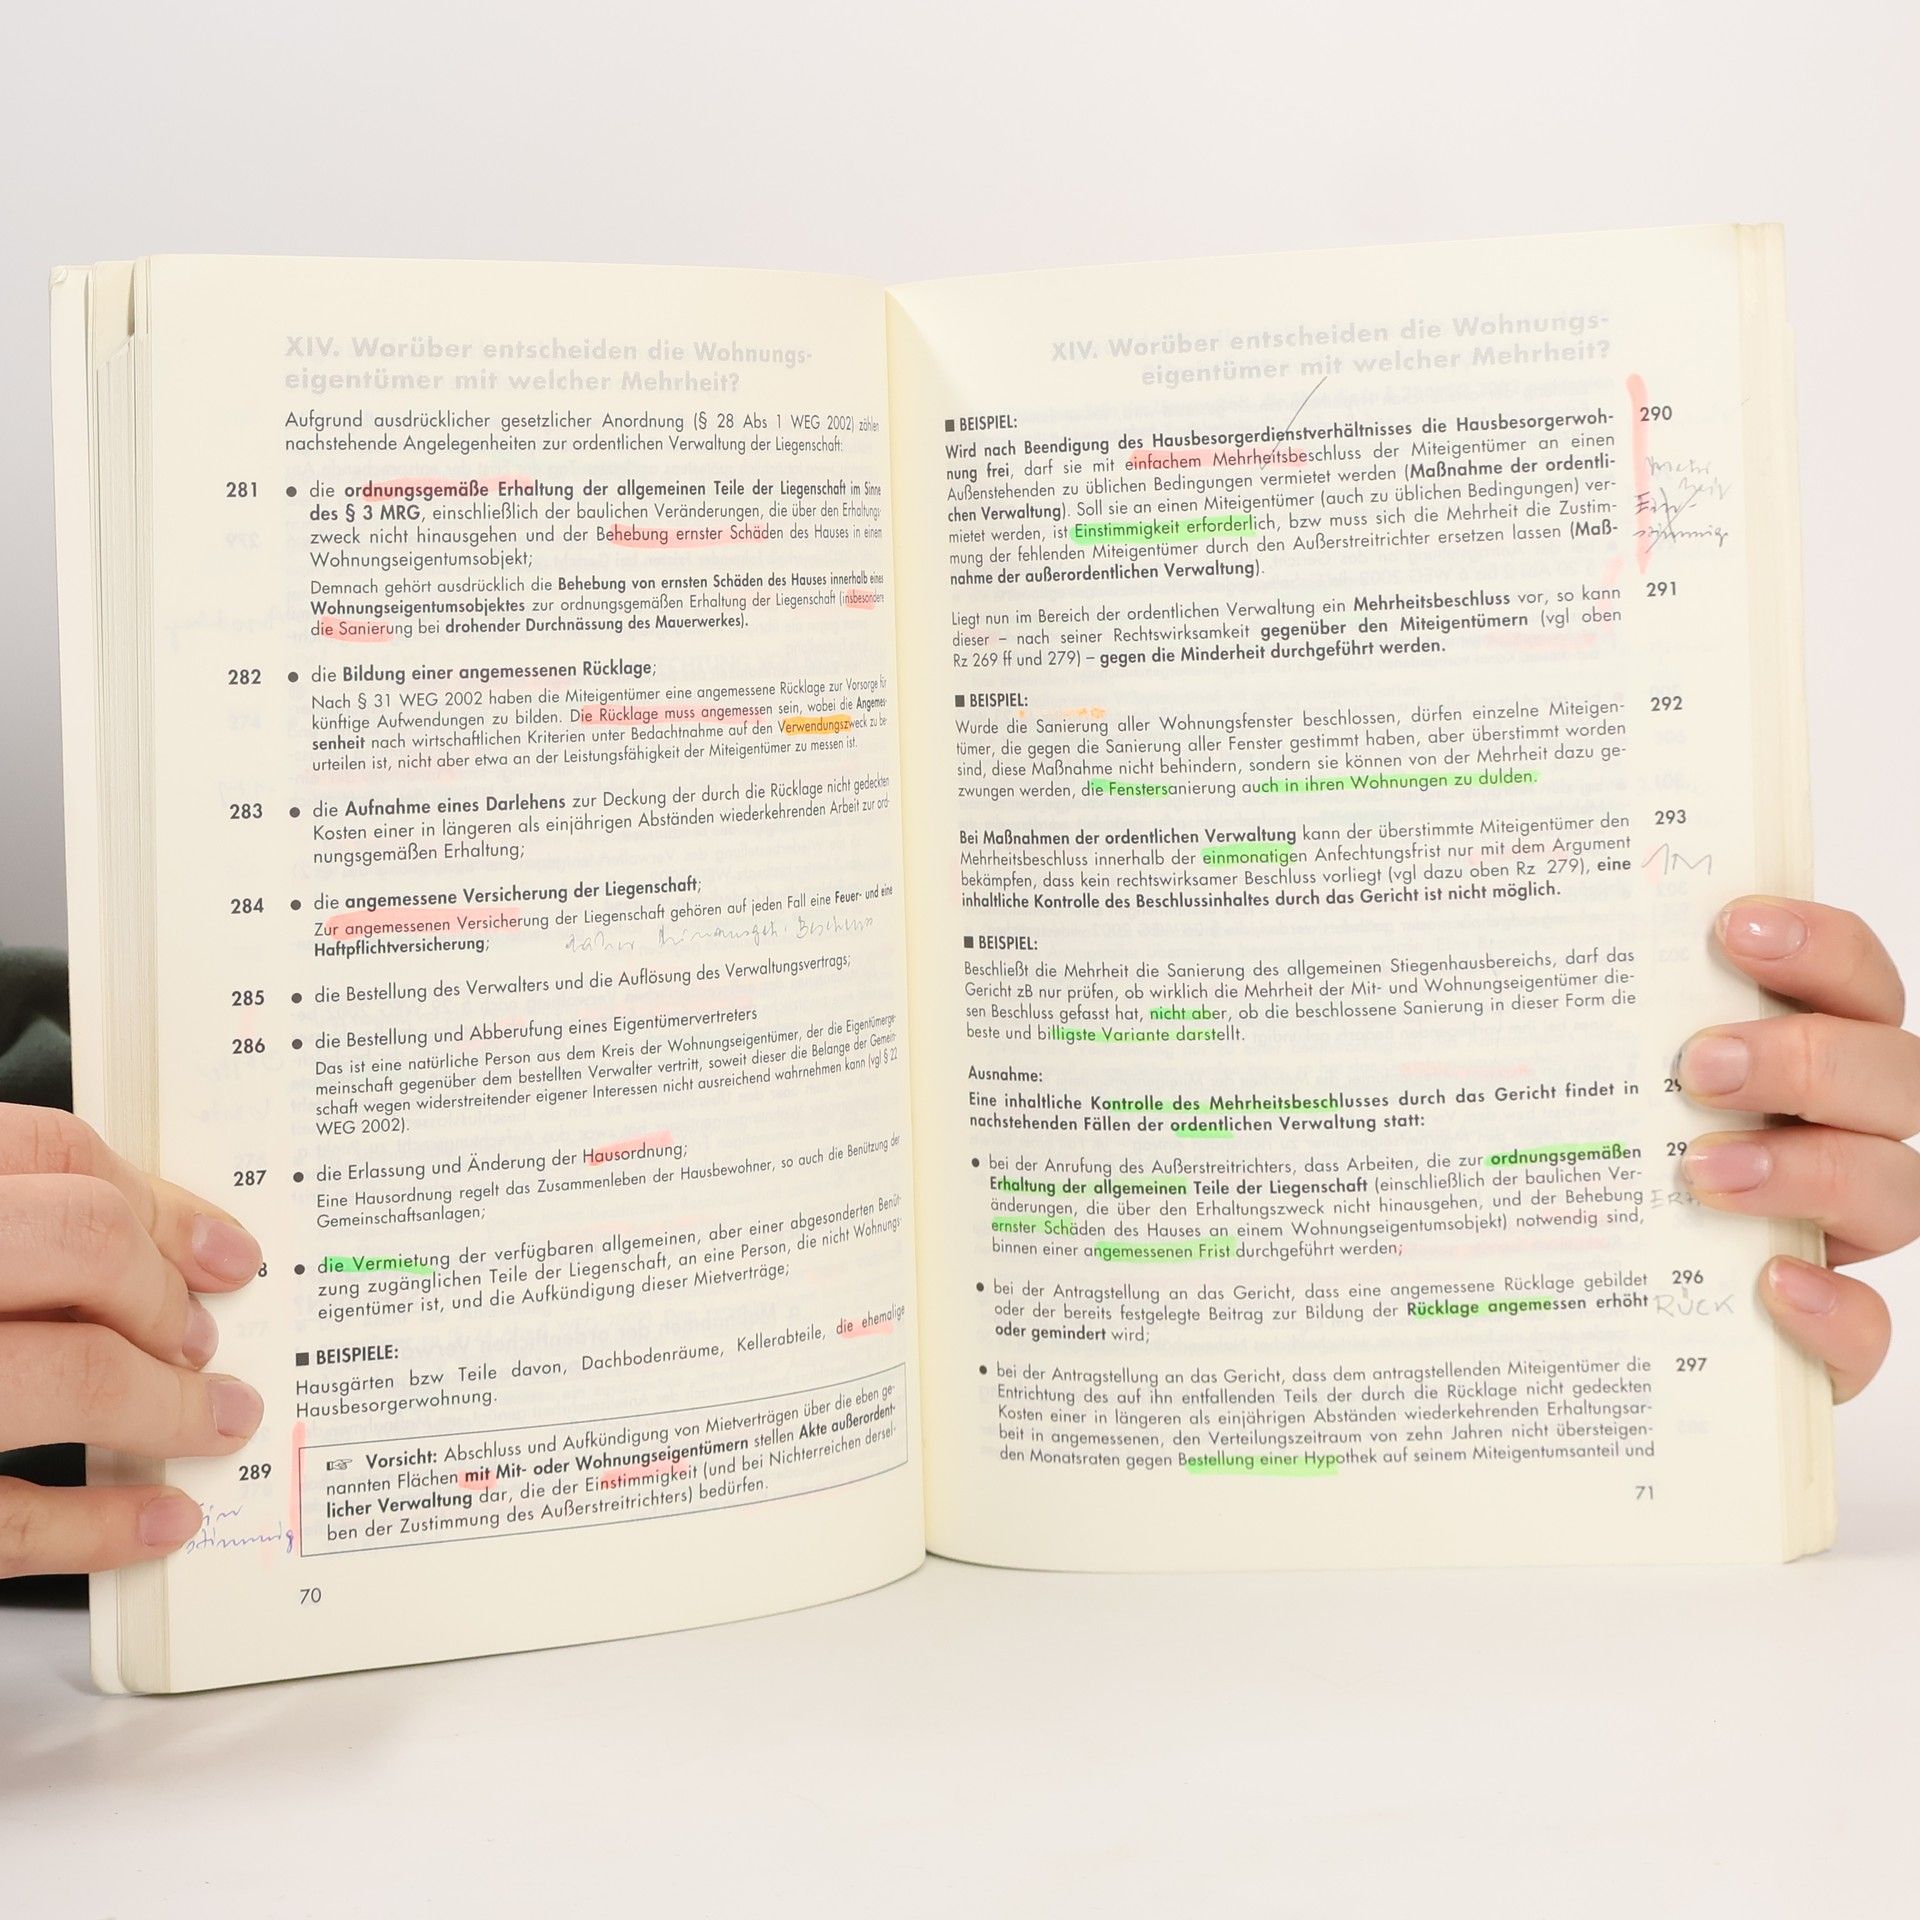 XIV. Worüber entscheiden die Wohnungs-
eigentümer mit welcher Mehrheit?
Aufgrund ausdrücklicher gesetzlicher Anordnung (§ 28 Abs 1 WEG 2002) zählen
nachstehende Angelegenheiten zur ordentlichen Verwaltung der Liegenschaft:
281 ● die ordnungsgemäße Erhaltung der allgemeinen Teile der Liegenschaft im Sinne
des § 3 MRG, einschließlich der baulichen Veränderungen, die über den Erhaltungs-
zweck nicht hinausgehen und der Behebung ernster Schäden des Hauses in einem
Wohnungseigentumsobjekt;
Demnach gehört ausdrücklich die Behebung von ernsten Schäden des Hauses innerhalb eines
Wohnungseigentumsobjektes zur ordnungsgemäßen Erhaltung der Liegenschaft (insbesondere
die Sanierung bei drohender Durchnässung des Mauerwerkes).
282 ● die Bildung einer angemessenen Rücklage;
Nach § 31 WEG 2002 haben die Miteigentümer eine angemessene Rücklage zur Vorsorge für
künftige Aufwendungen zu bilden. Die Rücklage muss angemessen sein, wobei die Angemes-
senheit nach wirtschaftlichen Kriterien unter Bedachtnahme auf den Verwendungszweck zu be-
urteilen ist, nicht aber etwa an der Leistungsfähigkeit der Miteigentümer zu messen ist.
283 ● die Aufnahme eines Darlehens zur Deckung der durch die Rücklage nicht gedeckten
Kosten einer in längeren als einjährigen Abständen wiederkehrenden Arbeit zur ord-
nungsgemäßen Erhaltung;
284 ● die angemessene Versicherung der Liegenschaft;
Zur angemessenen Versicherung der Liegenschaft gehören auf jeden Fall eine Feuer- und eine
Haftpflichtversicherung;
285 ● die Bestellung des Verwalters und die Auflösung des Verwaltungsvertrags;
286 ● die Bestellung und Abberufung eines Eigentümervertreters
Das ist eine natürliche Person aus dem Kreis der Wohnungseigentümer, der die Eigentümerge-
meinschaft gegenüber dem bestellten Verwalter vertritt, soweit dieser die Belange der Gemein-
schaft wegen widerstreitender eigener Interessen nicht ausreichend wahrnehmen kann (vgl § 22
WEG 2002).
287 ● die Erlassung und Änderung der Hausordnung;
Eine Hausordnung regelt das Zusammenleben der Hausbewohner, so auch die Benützung der
Gemeinschaftsanlagen;
8 ● die Vermietung der verfügbaren allgemeinen, aber einer abgesonderten Benüt-
zung zugänglichen Teile der Liegenschaft, an eine Person, die nicht Wohnungs-
eigentümer ist, und die Aufkündigung dieser Mietverträge;
■ BEISPIELE:
Hausgärten bzw Teile davon, Dachbodenräume, Kellerabteile, die ehemalige
Hausbesorgerwohnung.
289 ☞ Vorsicht: Abschluss und Aufkündigung von Mietverträgen über die eben ge-
nannten Flächen mit Mit- oder Wohnungseigentümern stellen Akte außerordent-
licher Verwaltung dar, die der Einstimmigkeit (und bei Nichterreichen dersel-
ben der Zustimmung des Außerstreitrichters) bedürfen.
stimmig
70
XIV. Worüber entscheiden die Wohnungs-
eigentümer mit welcher Mehrheit?
■ BEISPIEL:
Wird nach Beendigung des Hausbesorgerdienstverhältnisses die Hausbesorgerwoh- 290
nung frei, darf sie mit einfachem Mehrheitsbeschluss der Miteigentümer an einen
Außenstehenden zu üblichen Bedingungen vermietet werden (Maßnahme der ordentli-
chen Verwaltung). Soll sie an einen Miteigentümer (auch zu üblichen Bedingungen) ver-
mietet werden, ist Einstimmigkeit erforderlich, bzw muss sich die Mehrheit die Zustim-
mung der fehlenden Miteigentümer durch den Außerstreitrichter ersetzen lassen (Maß-
nahme der außerordentlichen Verwaltung).
Liegt nun im Bereich der ordentlichen Verwaltung ein Mehrheitsbeschluss vor, so kann 291
dieser – nach seiner Rechtswirksamkeit gegenüber den Miteigentümern (vgl oben
Rz 269 ff und 279) – gegen die Minderheit durchgeführt werden.
■ BEISPIEL:
Wurde die Sanierung aller Wohnungsfenster beschlossen, dürfen einzelne Miteigen- 292
tümer, die gegen die Sanierung aller Fenster gestimmt haben, aber überstimmt worden
sind, diese Maßnahme nicht behindern, sondern sie können von der Mehrheit dazu ge-
zwungen werden, die Fenstersanierung auch in ihren Wohnungen zu dulden.
Bei Maßnahmen der ordentlichen Verwaltung kann der überstimmte Miteigentümer den 293
Mehrheitsbeschluss innerhalb der einmonatigen Anfechtungsfrist nur mit dem Argument
bekämpfen, dass kein rechtswirksamer Beschluss vorliegt (vgl dazu oben Rz 279), eine
inhaltliche Kontrolle des Beschlussinhaltes durch das Gericht ist nicht möglich.
1M
■ BEISPIEL:
Beschließt die Mehrheit die Sanierung des allgemeinen Stiegenhausbereichs, darf das
Gericht zB nur prüfen, ob wirklich die Mehrheit der Mit- und Wohnungseigentümer die-
sen Beschluss gefasst hat, nicht aber, ob die beschlossene Sanierung in dieser Form die
beste und billigste Variante darstellt.
Ausnahme:
Eine inhaltliche Kontrolle des Mehrheitsbeschlusses durch das Gericht findet in 29
nachstehenden Fällen der ordentlichen Verwaltung statt:
● bei der Anrufung des Außerstreitrichters, dass Arbeiten, die zur ordnungsgemäßen 29
Erhaltung der allgemeinen Teile der Liegenschaft (einschließlich der baulichen Ver-
änderungen, die über den Erhaltungszweck nicht hinausgehen, und der Behebung
ernster Schäden des Hauses an einem Wohnungseigentumsobjekt) notwendig sind,
binnen einer angemessenen Frist durchgeführt werden;
● bei der Antragstellung an das Gericht, dass eine angemessene Rücklage gebildet 296
oder der bereits festgelegte Beitrag zur Bildung der Rücklage angemessen erhöht RÜCK
oder gemindert wird;
● bei der Antragstellung an das Gericht, dass dem antragstellenden Miteigentümer die 297
Entrichtung des auf ihn entfallenden Teils der durch die Rücklage nicht gedeckten
Kosten einer in längeren als einjährigen Abständen wiederkehrenden Erhaltungsar-
beit in angemessenen, den Verteilungszeitraum von zehn Jahren nicht übersteigen-
den Monatsraten gegen Bestellung einer Hypothek auf seinem Miteigentumsanteil und
71